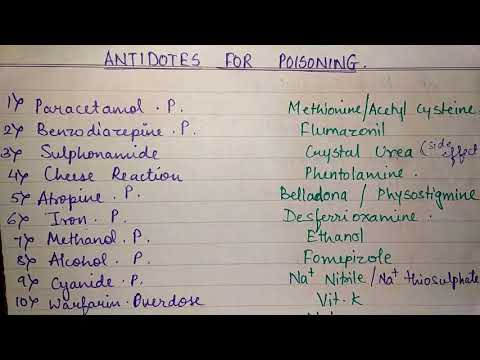 ANTIDOTES FOR POISONING.
1) Paracetamol . P. Methionine/Acetyl cysteine
2) Benzodiazepine . P. Flumazonil
3) Sulphonamide Crystal Urea (side effect)
4) Cheese Reaction Phentolamine.
5) Atropine . P. Belladona / Physostigmine
6) Iron . P. Desferrioxamine.
7) Methanol . P. Ethanol
8) Alcohol . P. Fomepizole
9) Cyanide . P. Na+ Nitrile/Na+ thiosulphate
10) Warfarin . Overdose Vit. K